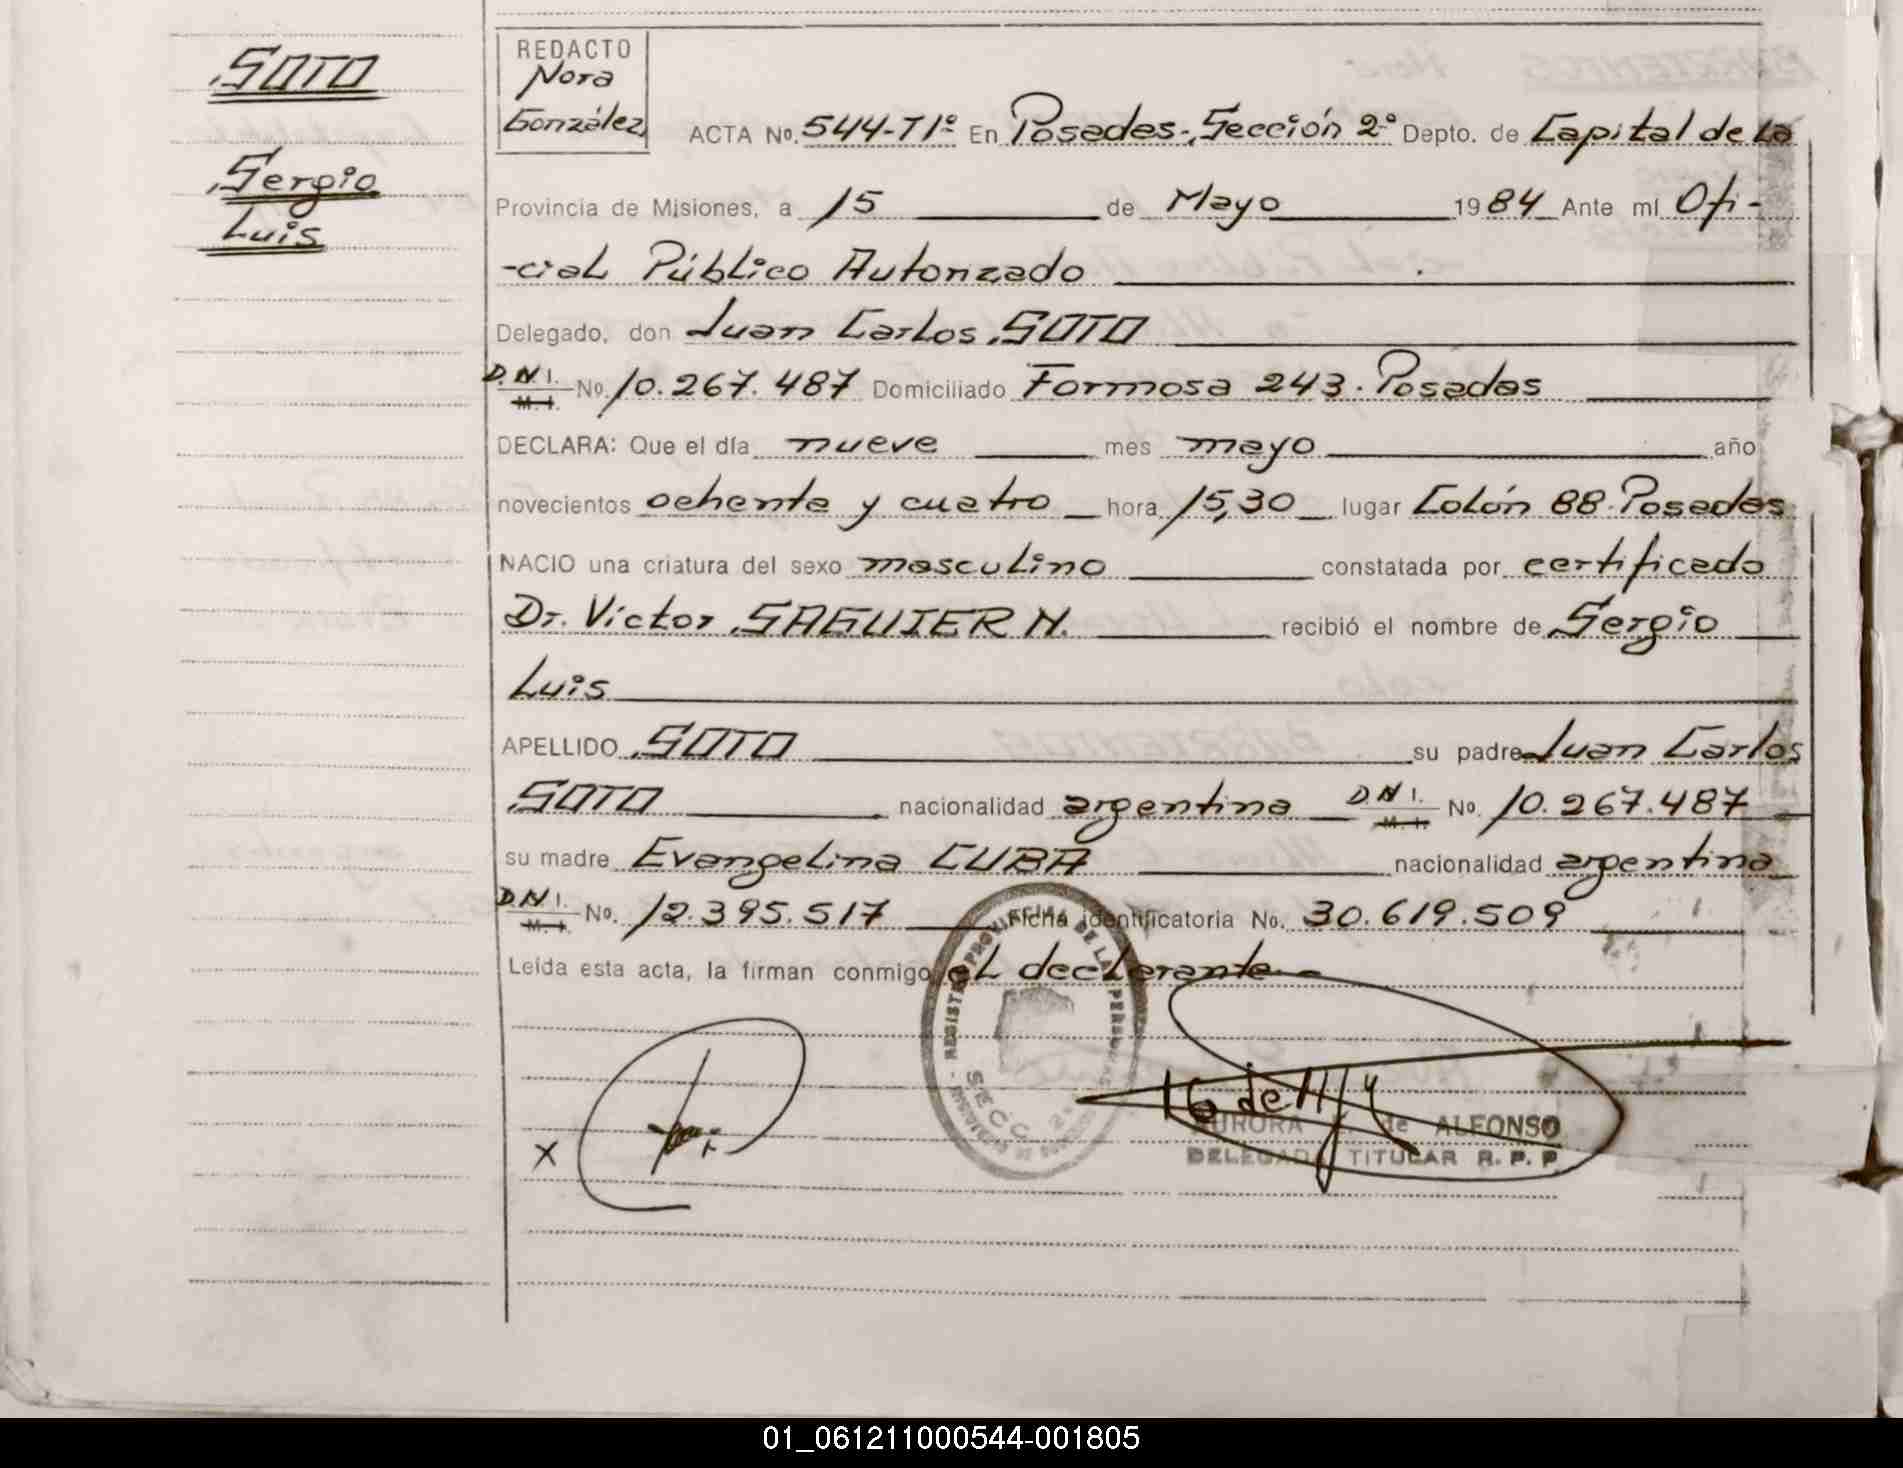 SOTO
Sergio
Luis
REDACTO
Nora
González
ACTA No. 544-T1º En Posadas-, Sección 2º Depto. de Capital de la
Provincia de Misiones, a 15 de Mayo 1984 Ante mí Ofi-
-cial Público Autorizado
Delegado, don Juan Carlos SOTO
D.N.I. M. I. No. 10.267.487 Domiciliado Formosa 243. Posadas
DECLARA: Que el día nueve mes mayo año
novecientos ochenta y cuatro hora 15,30 lugar Colón 88-Posadas
NACIO una criatura del sexo masculino constatada por certificado
Dr. Víctor SAGUIER N. recibió el nombre de Sergio
Luis
APELLIDO SOTO su padre Juan Carlos
SOTO nacionalidad argentina D.N.I. M. I. No. 10.267.487
su madre Evangelina CUBA nacionalidad argentina
D.N.I. M. I. No. 12.395.517 Ficha identificatoria No. 30.619.509
Leída esta acta, la firman conmigo el declarante
REGISTRO PROVINCIAL DE LAS PERSONAS
SECC. 2ª
AURORA de ALFONSO
DELEGADA TITULAR R. P. P.
X
01_061211000544-001805